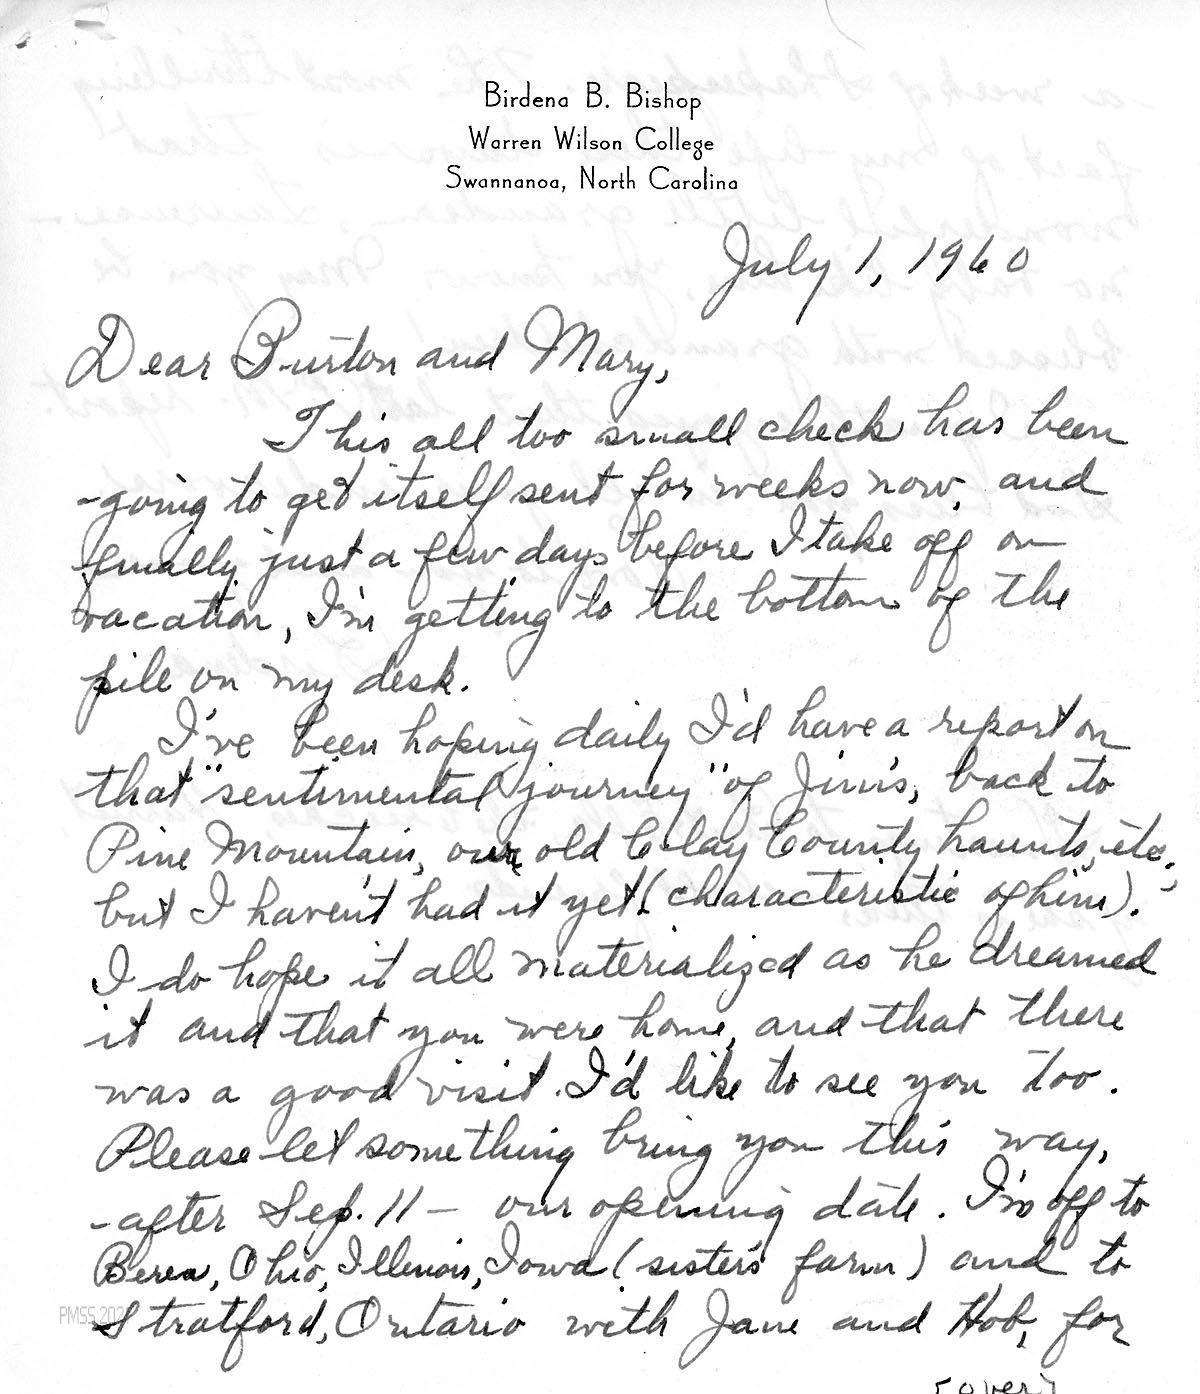 Birdena B. Bishop
Warren Wilson College
Swannanoa, North Carolina
July 1, 1960
Dear Burton and Mary,
This all too small check has been
going to get itself sent for weeks now, and
finally, just a few days before I take off on
vacation, I'm getting to the bottom of the
pile on my desk.
I've been hoping daily I'd have a report on
that "sentimental journey" of Jim's, back to
Pine Mountain, our old Clay County haunts, etc.,
but I haven't had it yet! (characteristic of him).
I do hope it all materialized as he dreamed
it and that you were home, and that there
was a good visit. I'd like to see you too.
Please let something bring you this way,
after Sep. 11 — our opening date. I'm off to
Berea, Ohio, Illinois, Iowa (sister's farm) and to
PMSS 202
Stratford, Ontario with Jane and Hob, for
(over)